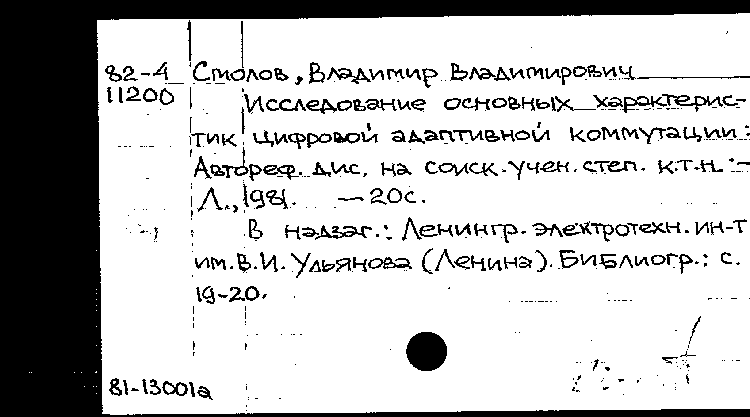 82-4 Смолов, Владимир Владимирович
11200 Исследование основных характерис-
тик цифровой адаптивной коммутации:
Автореф. дис. на соиск. учен. степ. к.т.н. :-
Л., 1981. — 20с.
В надзаг.: Ленингр. электротехн. ин-т
им. В.И. Ульянова (Ленина). Библиогр.: с.
19-20.
81-13001а